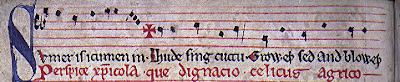 Sumer is icumen in· Lhude sing cuccu· Groweþ sed and bloweþ
Perspice xp̅icola que dignacio celicus agricola